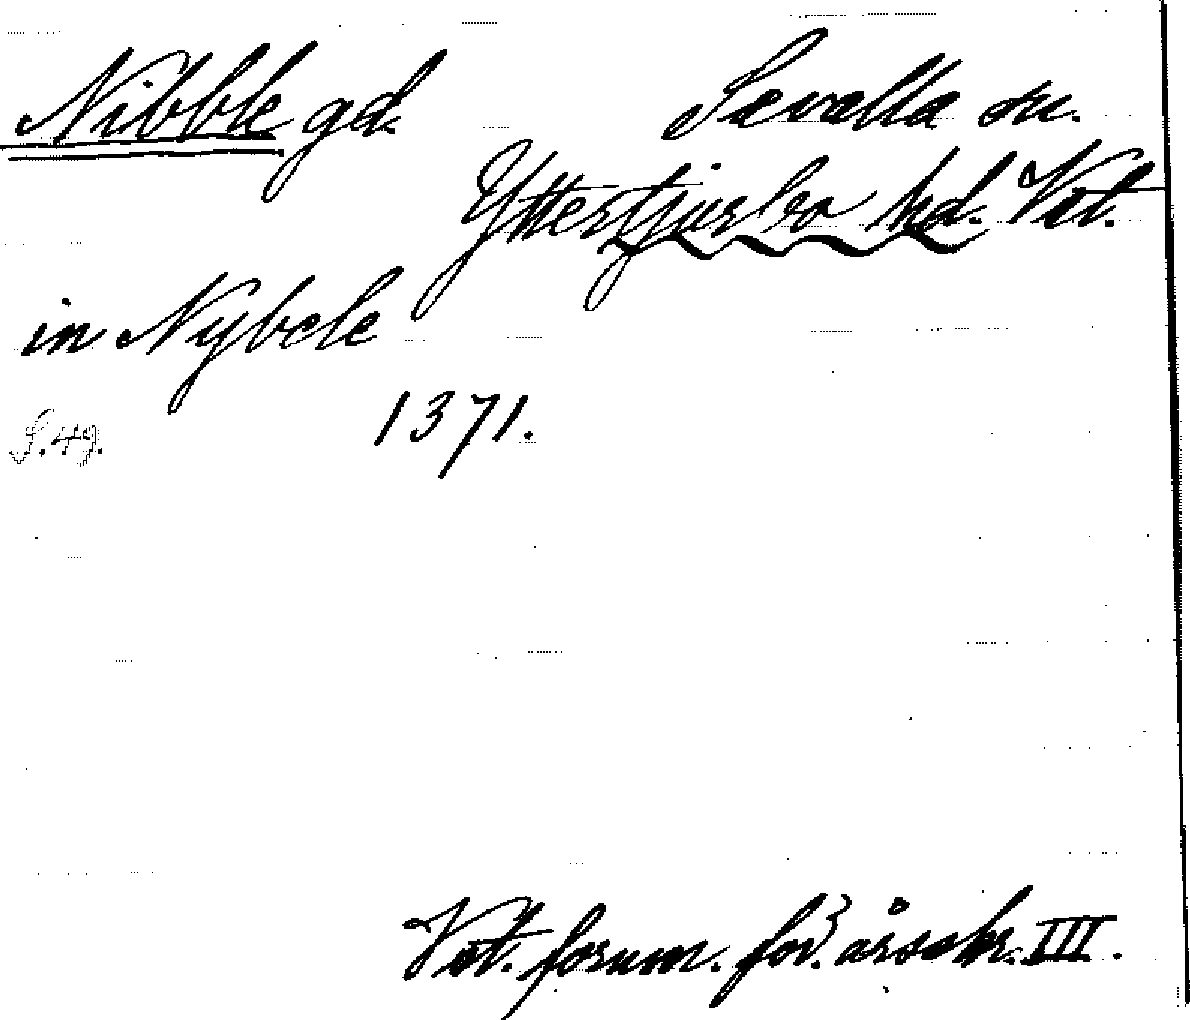 Nibble gd. Sevalla sn.
Yttertjurbo hd. Vstl.
in Nybele
1371.
S. 49.
Vst. fornm. för. årsskr. III.